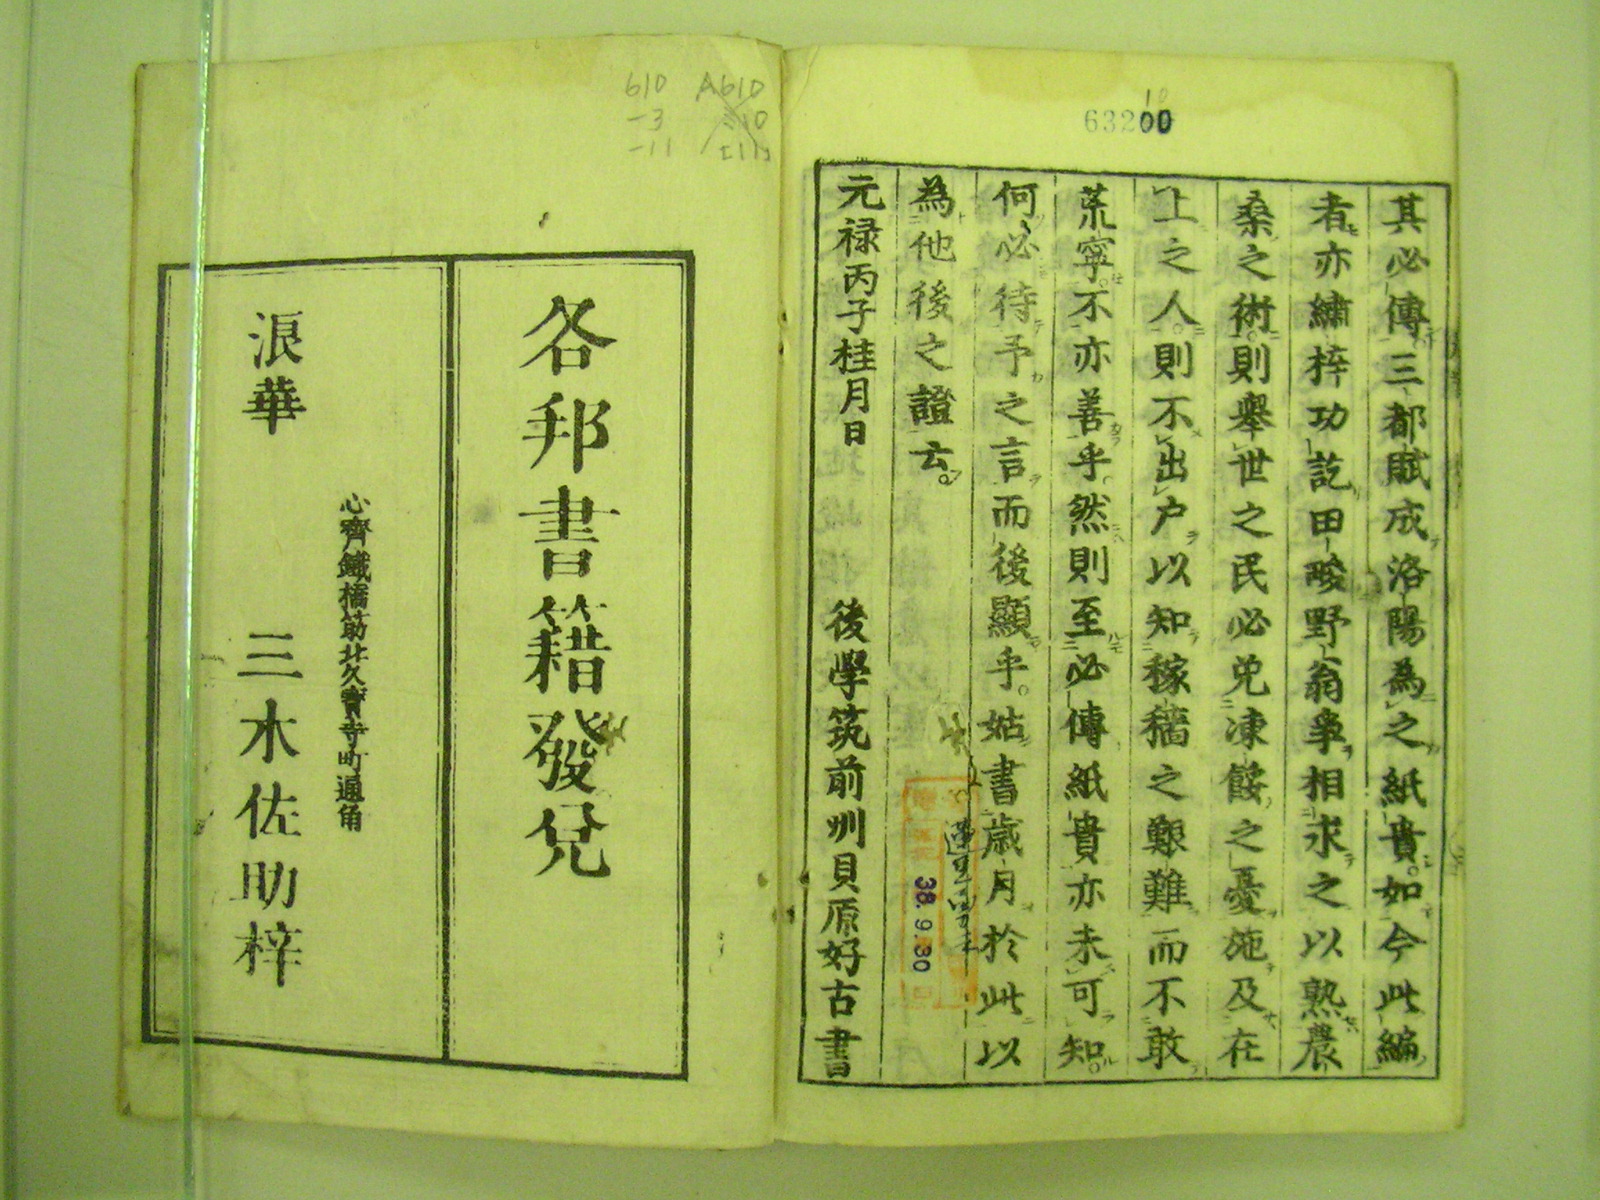 其必傳三都賦成洛陽為之紙貴。如今此編
者亦繡梓功訖田畯野翁爭相求之以熟農
桑之術則舉世之民必免凍餒之憂施及在
上之人則不出户以知稼穡之艱難而不敢
荒寧。不亦善乎。然則至必傳紙貴亦未可知。
何必待予之言而後顯乎。姑書歲月於此以
為他後之證云。
元禄丙子桂月日 後學筑前州貝原好古書
63200
10
38.9.30
610 A610
-3 310
-11 -11
各邦書籍發兌
心齊鐵橋筋北久寶寺町通角
浪華 三木佐助梓